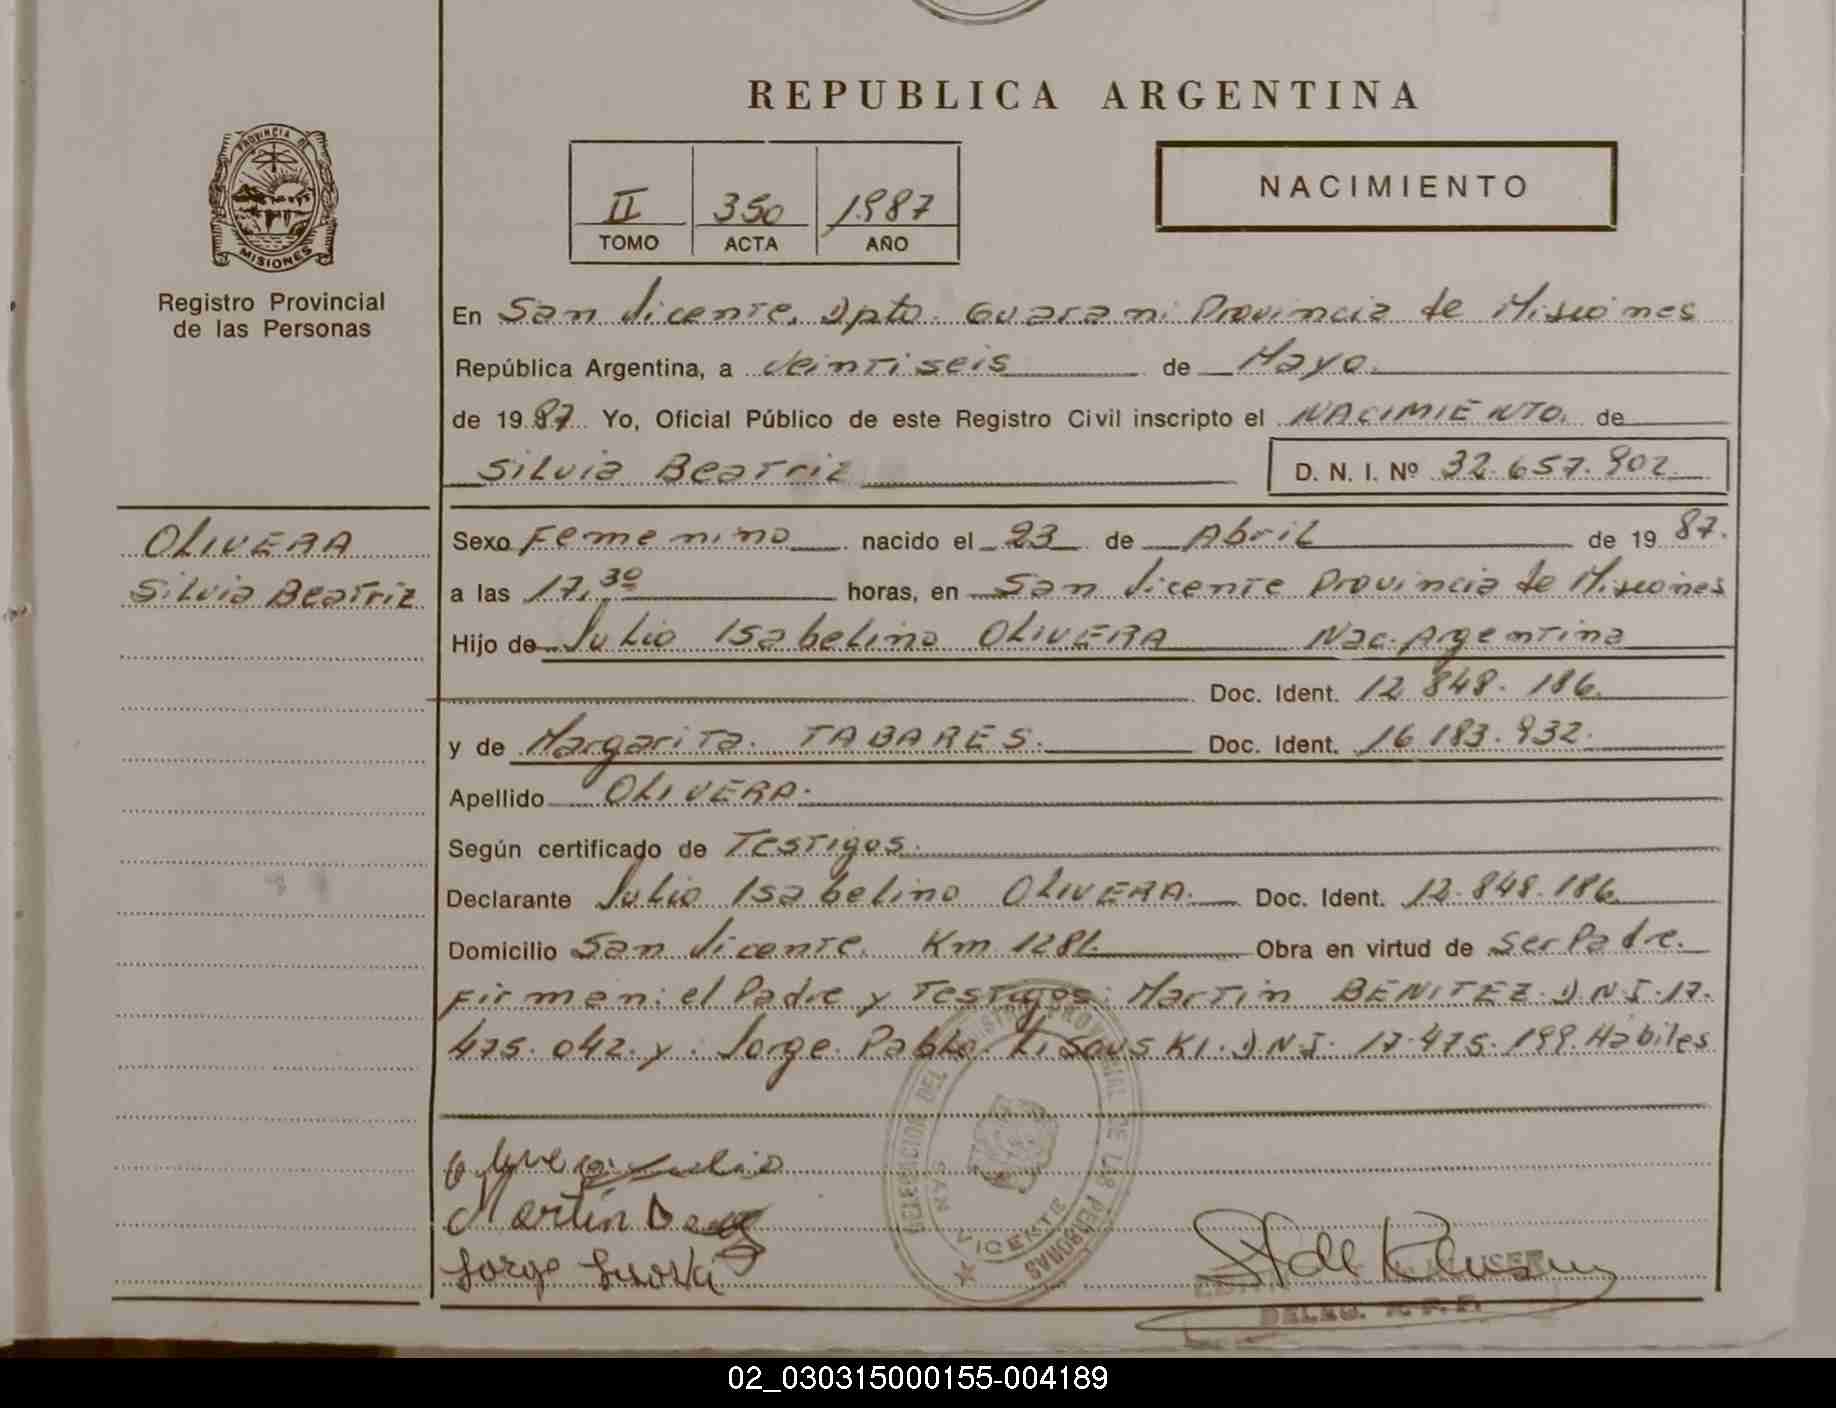 REPUBLICA ARGENTINA
PROVINCIA DE
MISIONES
Registro Provincial
de las Personas
II 350 1987
TOMO ACTA AÑO
NACIMIENTO
En San Vicente, Dpto. Guarani Provincia de Misiones
República Argentina, a Veintiseis de Mayo.
de 1987 Yo, Oficial Público de este Registro Civil inscripto el NACIMIENTO. de
Silvia Beatriz D. N. I. Nº 32.657.902
OLIVERA
Silvia Beatriz
Sexo Femenino nacido el 23 de Abril de 1987.
a las 17,30 horas, en San Vicente Provincia de Misiones
Hijo de Julio Isabelino OLIVERA Nac. Argentina
Doc. Ident. 12.848.186.
y de Margarita. TABARES. Doc. Ident. 16.183.932.
Apellido OLIVERA.
Según certificado de Testigos.
Declarante Julio Isabelino OLIVERA. Doc. Ident. 12.848.186
Domicilio San Vicente. Km 1281. Obra en virtud de ser Padre.
Firman: el Padre y Testigos: Martin BENITEZ. D N I. 17.
475.042. y. Jorge. Pablo. D N I. 17.475.199. Habiles
DELEGACION DEL REGISTRO PROVINCIAL DE LAS PERSONAS
SAN VICENTE
Julio
Martin
Jorge
DELEG. R. P. P.
02_030315000155-004189